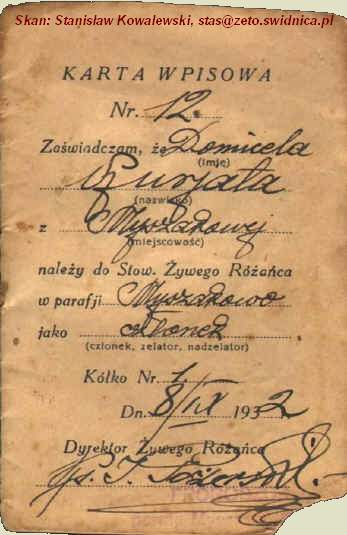 Skan: Stanisław Kowalewski, stas@zeto.swidnica.pl
KARTA WPISOWA
Nr. 12.
Zaświadczam, że Domicela
(imię)
Kurjata
(nazwisko)
z Myszakowej
(miejscowość)
należy do Stow. Żywego Różańca
w parafji Myszakowo
jako członek
(członek, zelator, nadzelator)
Kółko Nr. 1
Dn. 8/IX 1932
Dyrektor Żywego Różańca
ks. J.